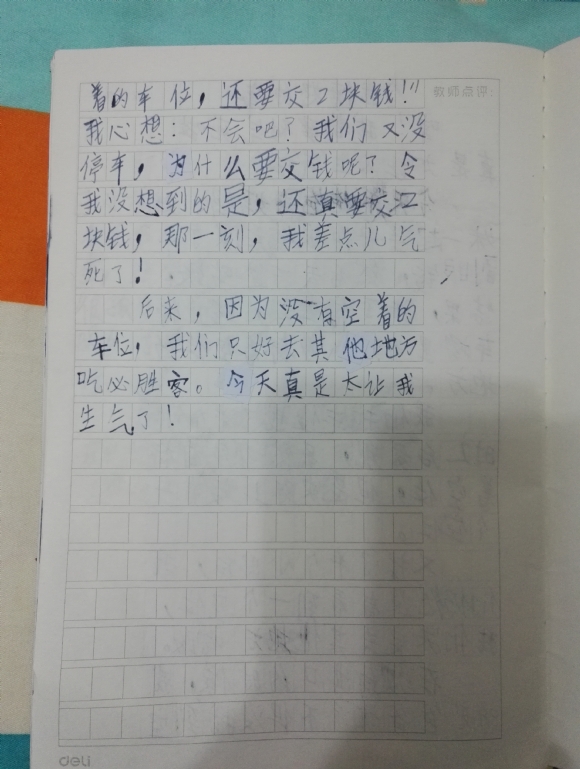 着的车位，还要交2块钱！”
教师点评：
我心想：不会吧？我们又没
停车，为什么要交钱呢？令
我没想到的是，还真要交2
块钱，那一刻，我差点儿气
死了！
后来，因为没有空着的
车位，我们只好去其他地方
吃必胜客。今天真是太让我
生气了！
deli